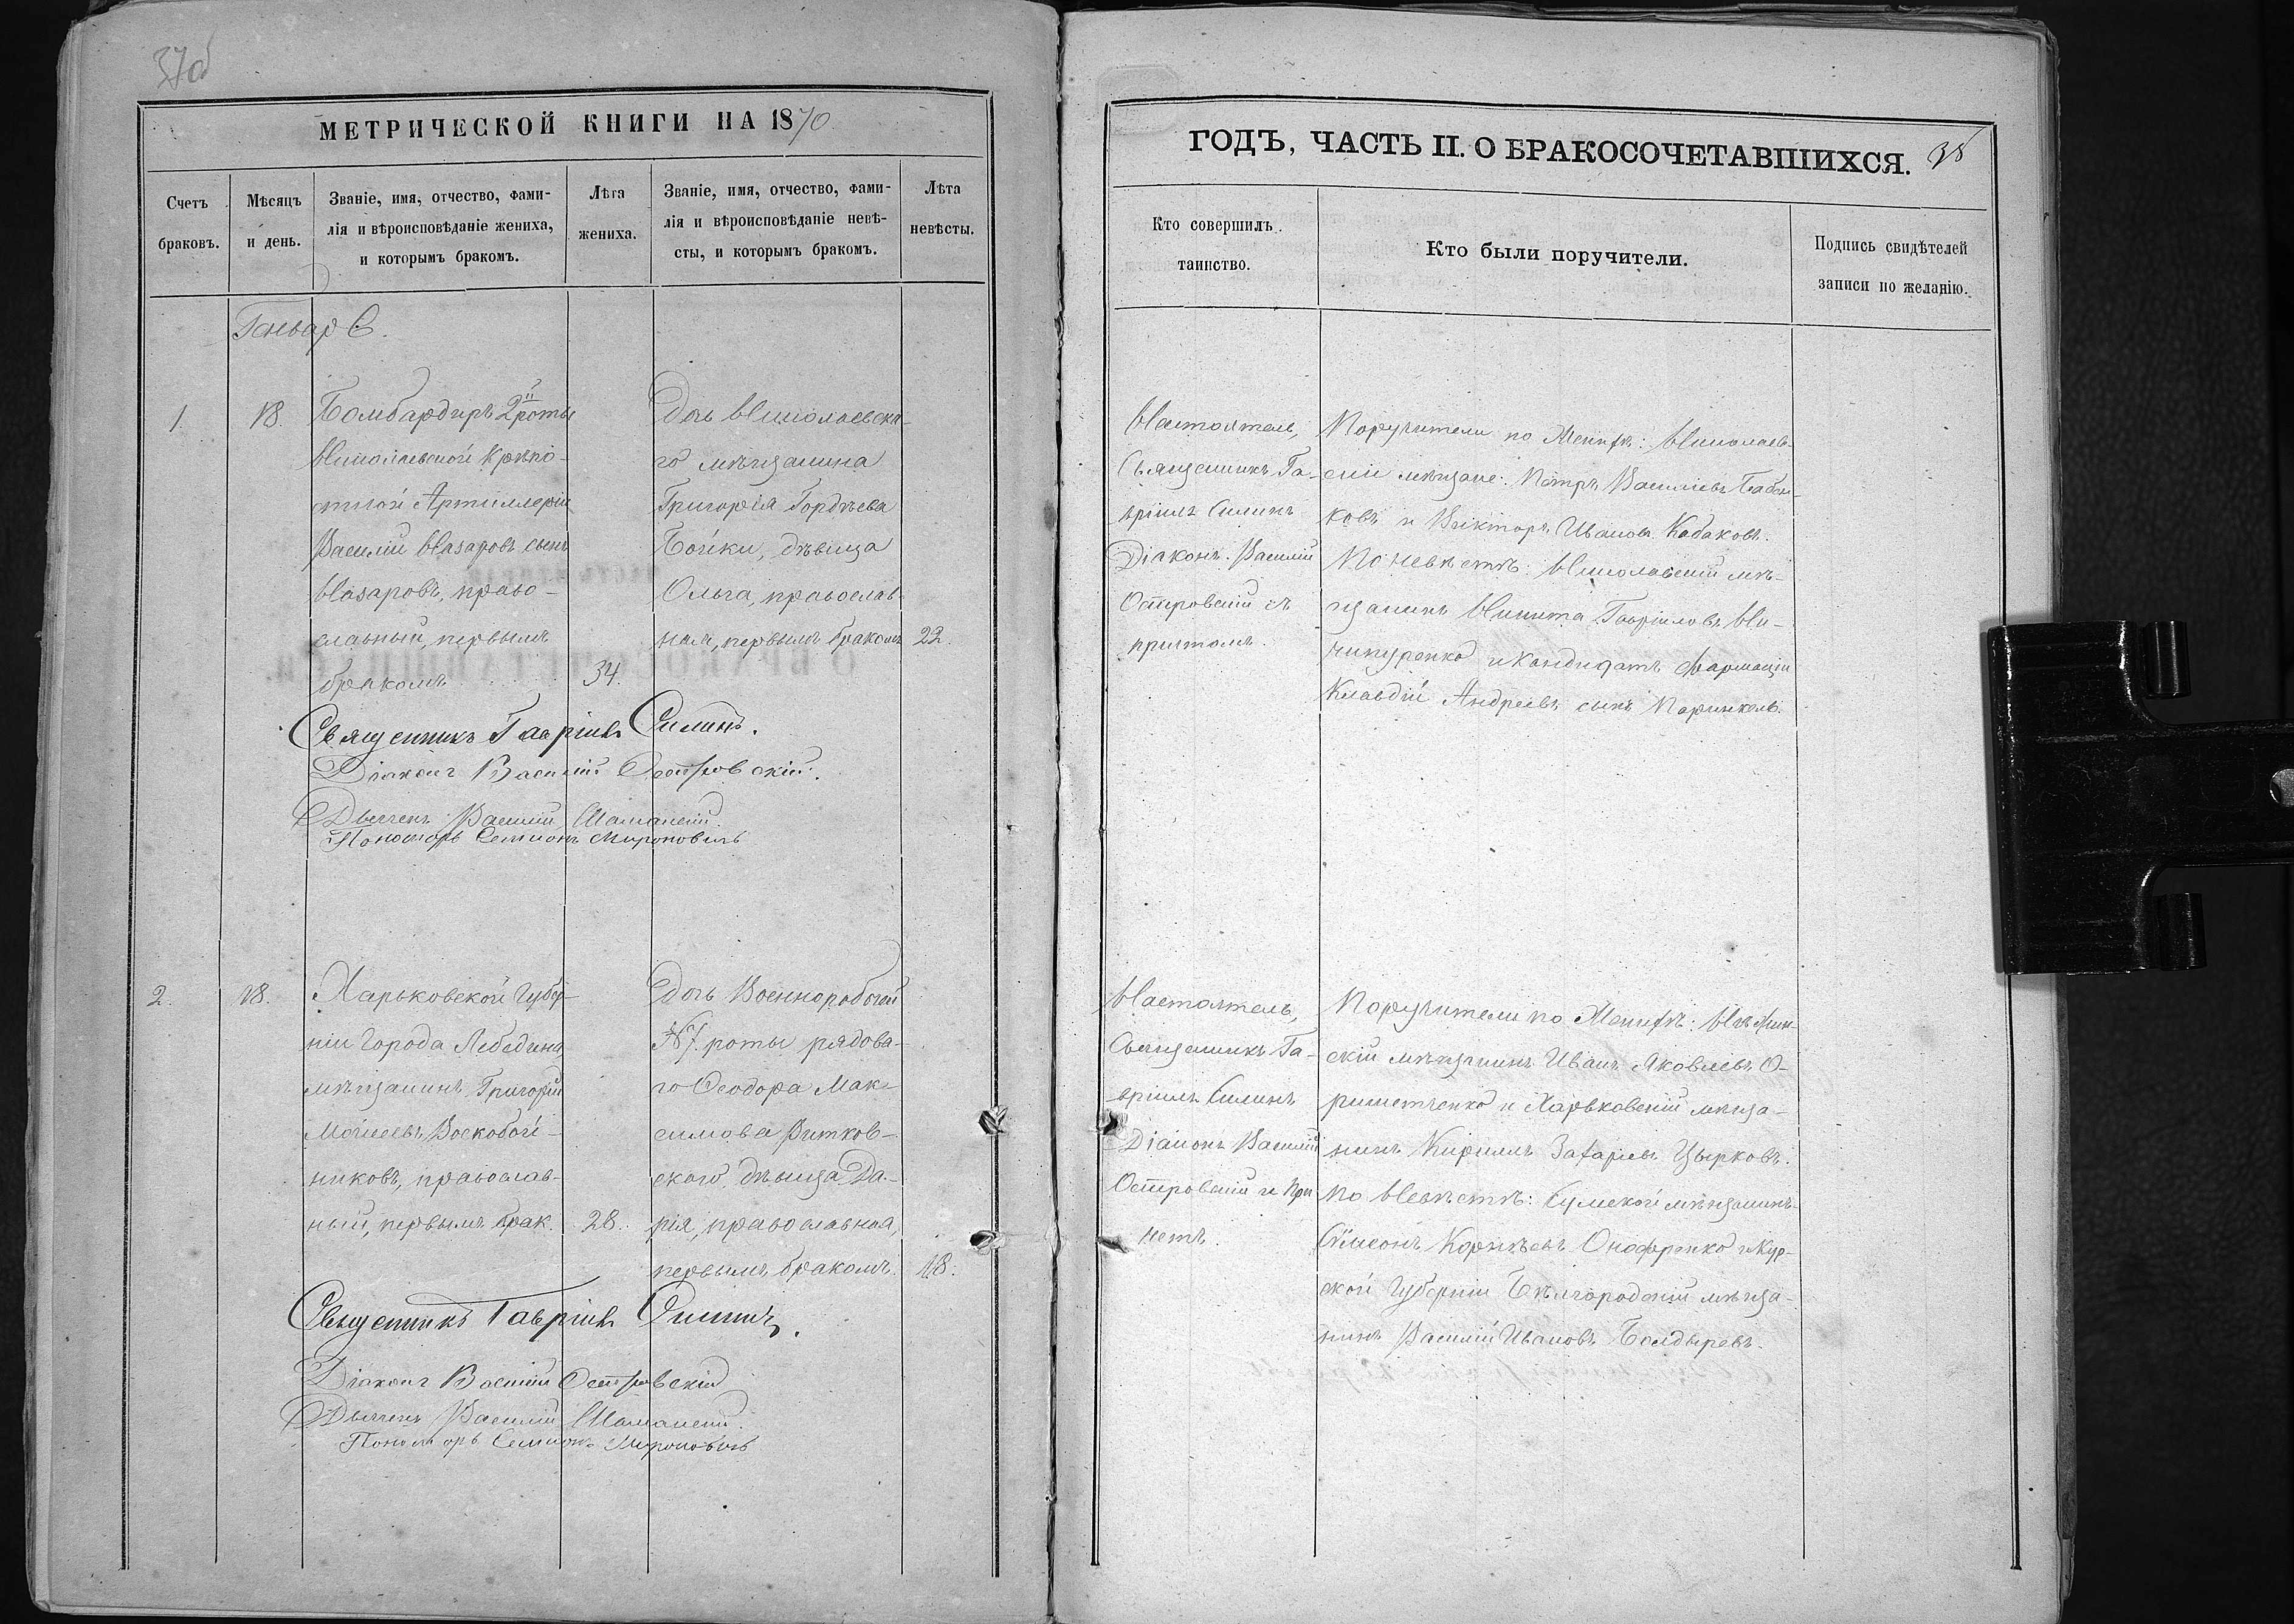 37об
МЕТРИЧЕСКОЙ КНИГИ НА 1870
Счетъ браковъ.
Мѣсяцъ и день.
Званіе, имя, отчество, фами-
лія и вѣроисповѣданіе жениха,
и которымъ бракомъ.
Лѣта жениха.
Званіе, имя, отчество, фами-
лія и вѣроисповѣданіе невѣ-
сты, и которымъ бракомъ.
Лѣта невѣсты.
Генварь.
1.
18.
Бомбардиръ 2й роты
Николаевской Крѣпо-
стной Артиллеріи
Василій Назаровъ сынъ
Назаровъ, право-
славный, первымъ
бракомъ
34.
Дочь Николаевска-
го мѣщанина
Григорія Гордѣева
Бойки, дѣвица
Ольга, православ-
ная, первымъ бракомъ
22.
Священникъ Гавріилъ Силинъ.
Діаконъ Василій Островскій.
Дьячекъ Василій Шаманскій
Пономарь Семионъ Мироновичъ
2.
18.
Харьковской Губер-
ніи Города Лебедина
мѣщанинъ Григорій
Моисеевъ Воскобой-
никовъ, православ-
ный, первымъ брак.
28.
Дочь Военнорабочей
№ 7. роты рядова-
го Ѳеодора Мак-
симова Витков-
скаго дѣвица Да-
рія, православная,
первымъ бракомъ.
18.
Священникъ Гавріилъ Силинъ.
Діаконъ Василій Островскій
Дьячекъ Василій Шаманскій.
Пономарь Семионъ Мироновичъ
ГОДЪ, ЧАСТЬ II. О БРАКОСОЧЕТАВШИХСЯ.
38
Кто совершилъ таинство.
Кто были поручители.
Подпись свидѣтелей
записи по желанію.
Настоятель,
Священникъ Га-
вріилъ Силинъ
Діаконъ Василій
Островскій съ
причтомъ.
Поручители по Женихѣ: Николаев-
скіе мѣщане: Петръ Васильевъ Бабен-
ковъ и Викторъ Ивановъ Кабаковъ.
По невѣстѣ: Николаевскій мѣ-
щанинъ Никита Гавріиловъ Ни-
чипуренко и Кандидатъ Фармаціи
Клавдій Андреевъ сынъ
Настоятель,
Священникъ Га-
вріилъ Силинъ
Діаконъ Василій
Островскій и При-
четъ.
Поручители по Женихѣ: Нѣжин-
скій мѣщанинъ Иванъ Яковлевъ О-
и Харьковскій мѣща-
нинъ Кирилъ Захарьевъ Цырковъ.
По Невѣстѣ: Сумской мѣщанинъ
Симеонъ Корнѣевъ Онофренко и Кур-
ской Губерніи Бѣлгородскій мѣща-
нинъ Василій Ивановъ Болдыревъ.